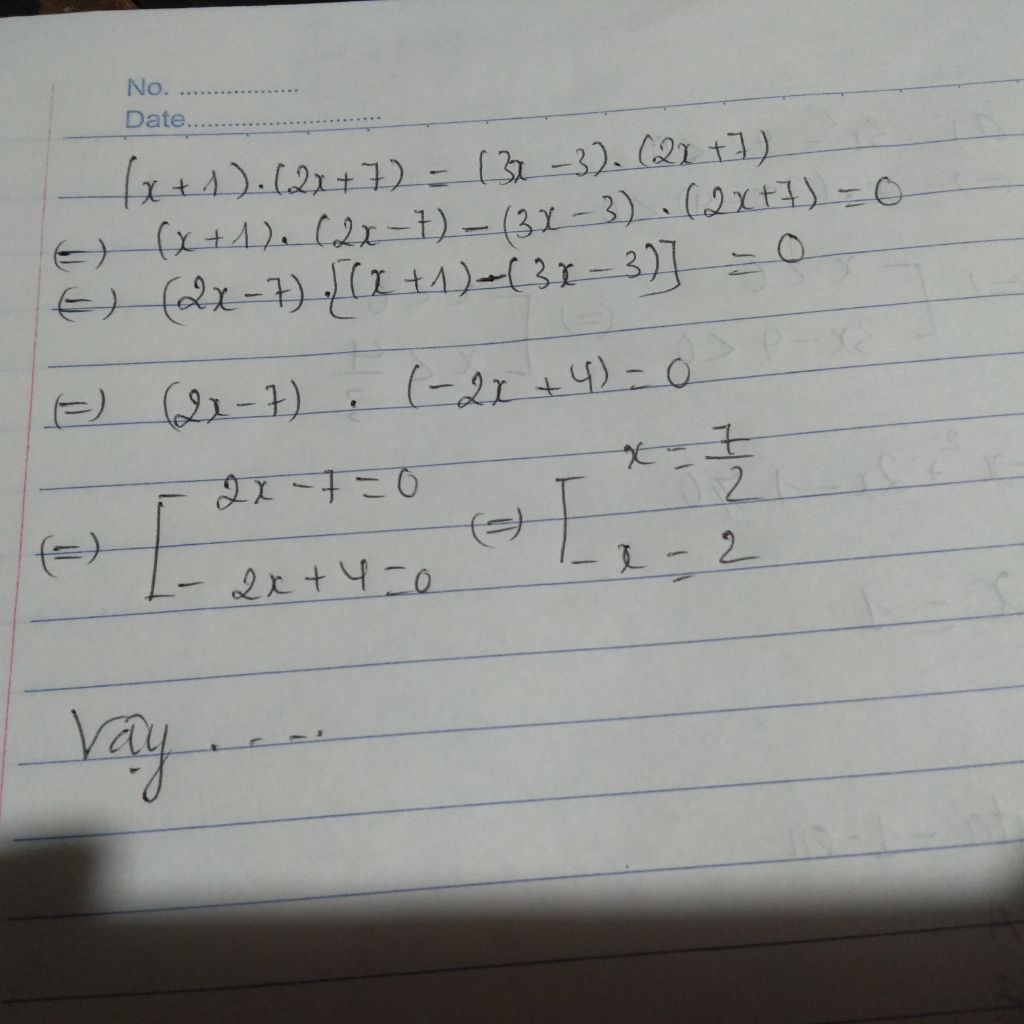 No. ..................
Date.............................
(x+1).(2x+7) = (3x-3).(2x+7)
(=) (x+1).(2x-7)-(3x-3).(2x+7)=0
(=) (2x-7).[(x+1)-(3x-3)] = 0
(=) (2x-7) . (-2x+4)=0
(=) [ 2x-7=0 (=) [ x = 7/2
- 2x+4=0 - x = 2
Vậy .....